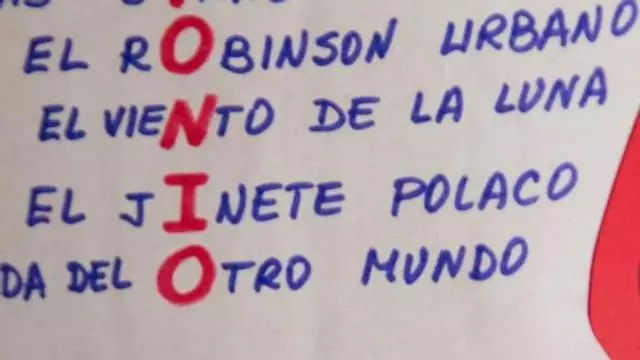 EL ROBINSON URBANO
EL VIENTO DE LA LUNA
EL JINETE POLACO
DA DEL OTRO MUNDO